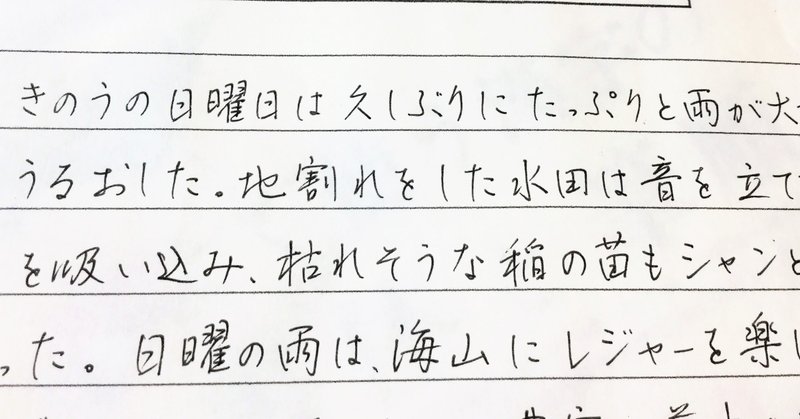 きのうの日曜日は久しぶりにたっぷりと雨が大
うるおした。地割れをした水田は音を立て
を吸い込み、枯れそうな稲の苗もシャンと
った。日曜の雨は、海山にレジャーを楽し